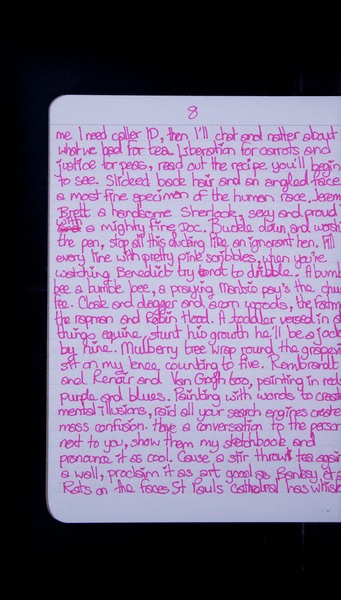 8
me I need caller ID, then I'll chat and natter about
what we had for tea. Liberation for carrots and
justice for peas, read out the recipe you'll begin
to see. Slicked back hair and an angled face
a most fine specimen of the human race. Jerem
Brett a handsome Sherlock, sexy and proud
with a mighty fine Doc. Buckle down and
the pen, stop all this clucking like an ignorant hen. Fill
every line with pretty pink scribbles, when you're
watching Benedict try not to dribble. A bumb
bee a bumble bee, a praying Mantis pay's the
fee. Cloak and dagger and acorn woods, the
the rapman and Robin Hood. A toddler versed in
things equine, stunt his growth he'll be a jock
by nine. Mulberry tree wrap round the grapevi
sit on my knee counting to five. Rembrandt
and Renoir and Van Gogh too, painting in red
purple and blues. Painting with words to create
mental illusions, raid all your search engines create
mass confusion. Have a conversation to the person
next to you, show them my sketchbook and
pronounce it as cool. Cause a stir throwt tea again
a wall, proclaim it as art good as Banksy
Rats on the faces St Pauls Cathedral has whisk